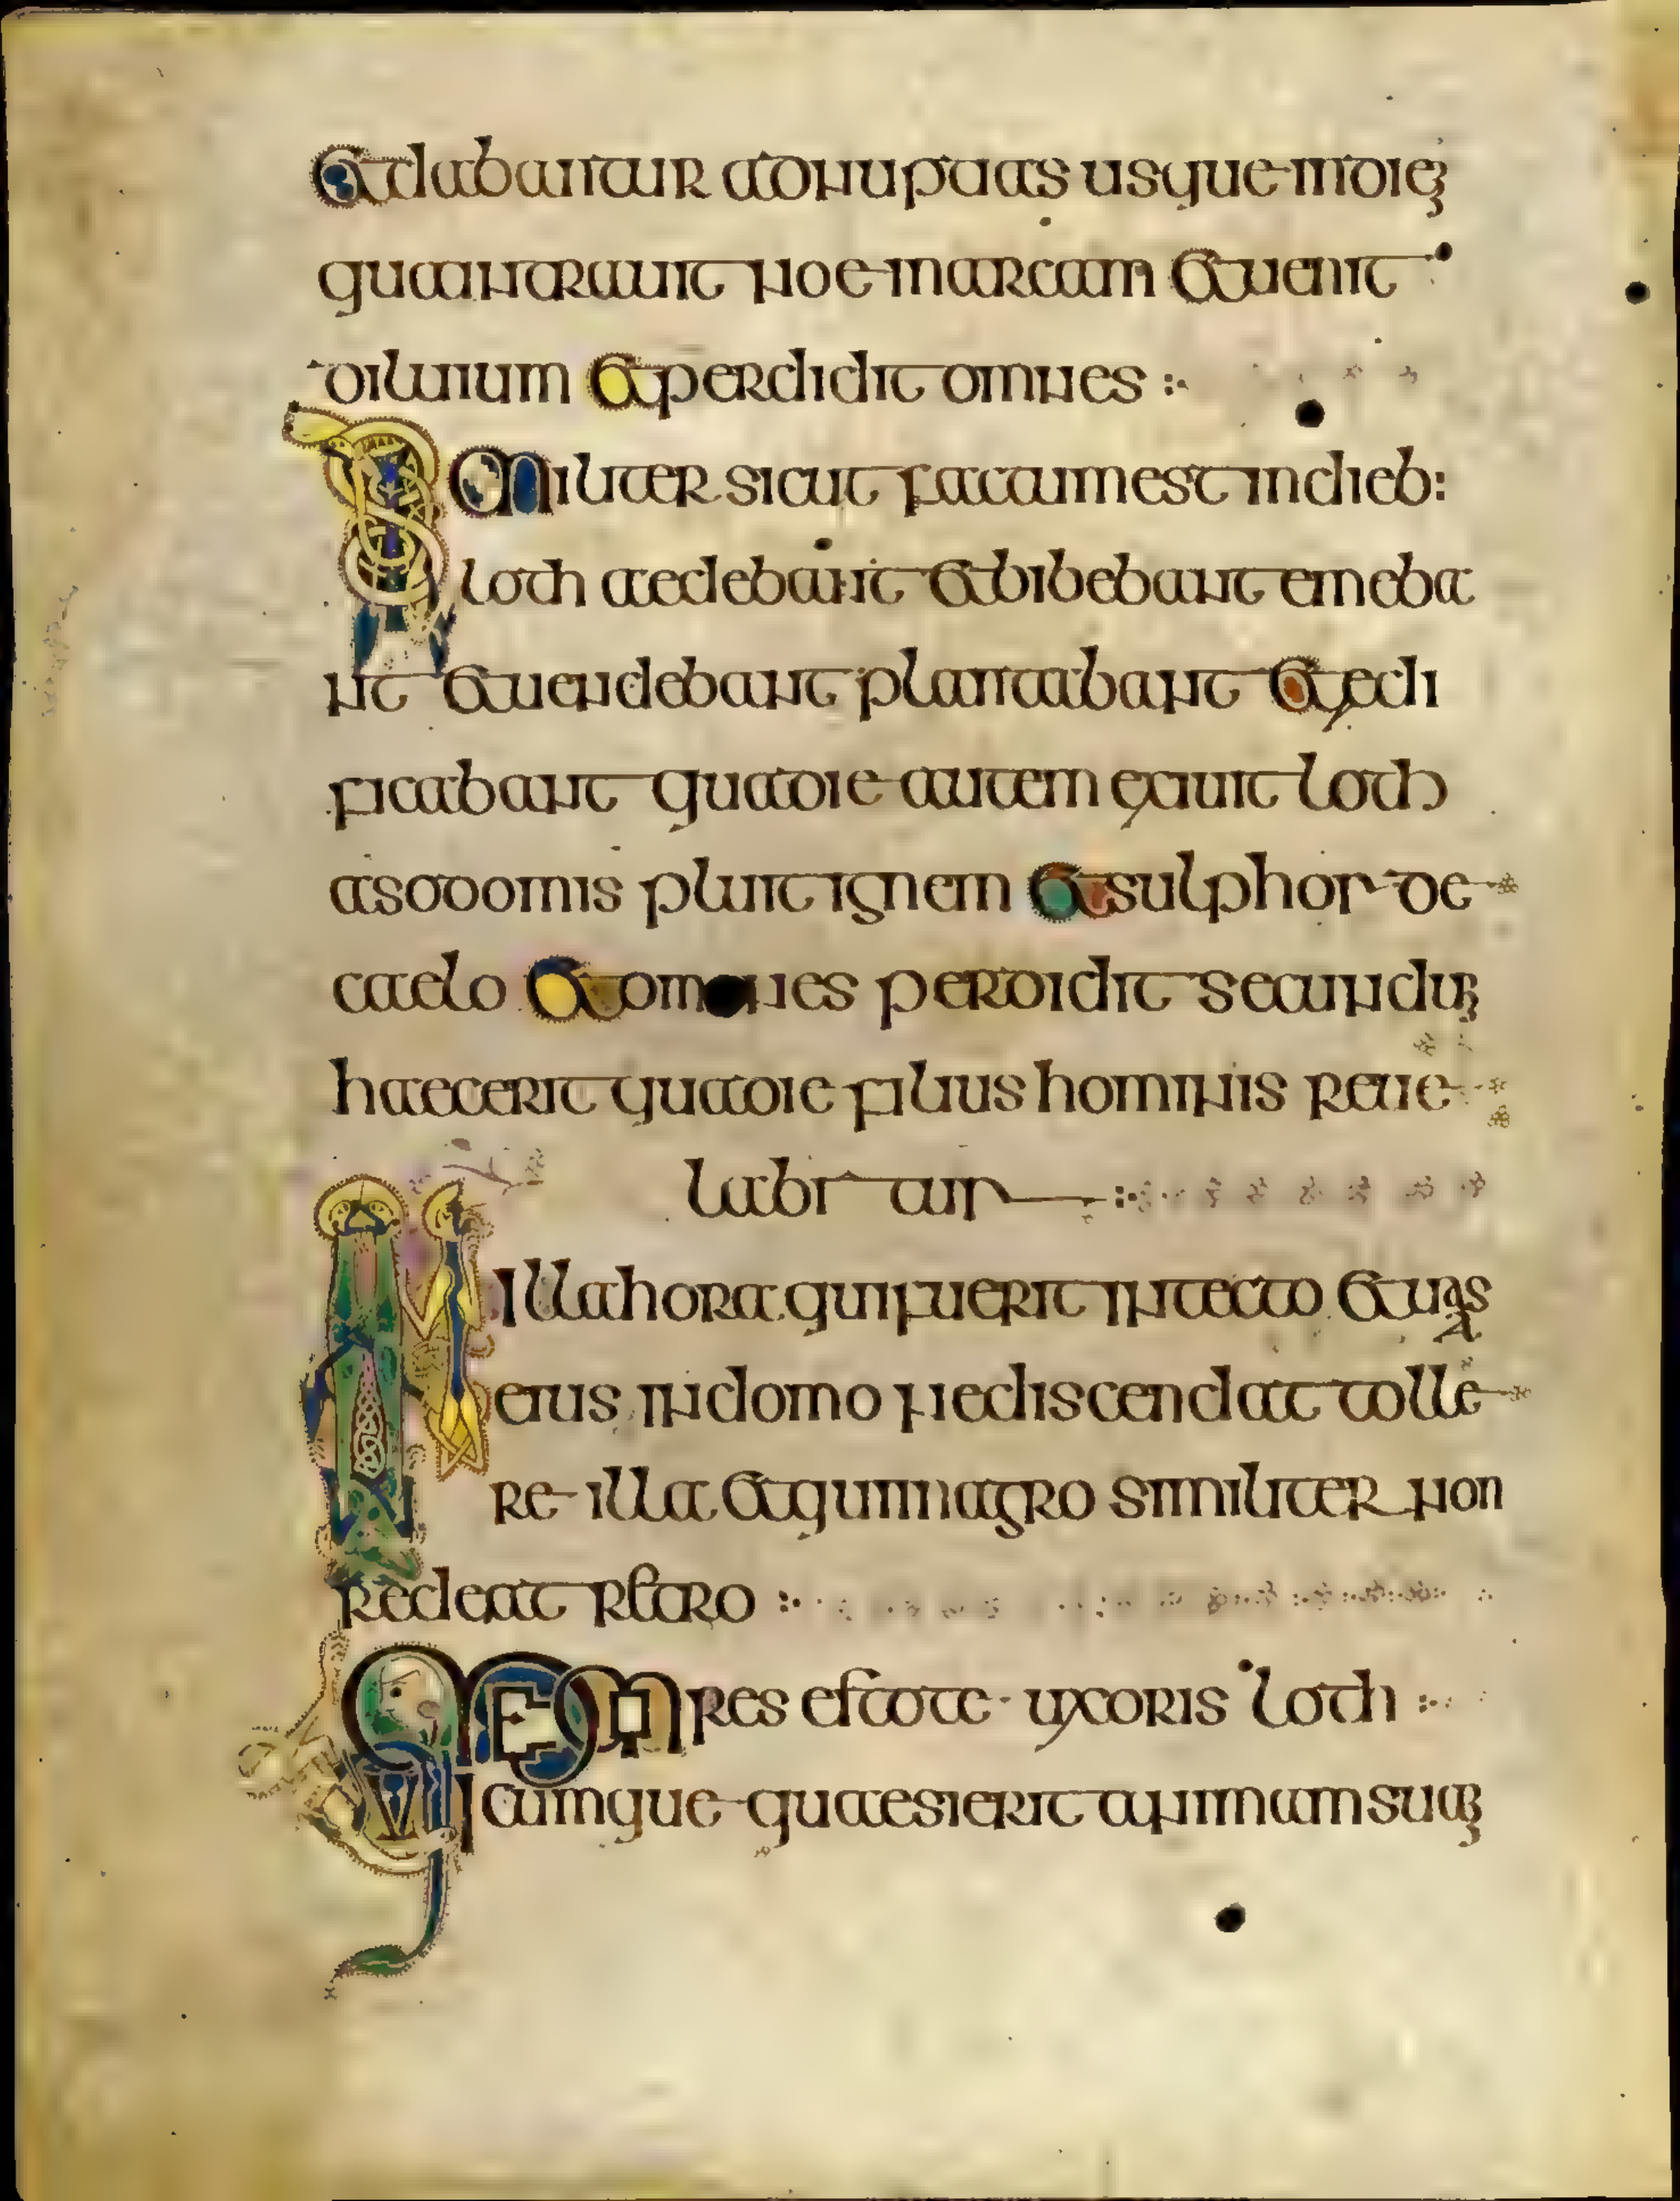 et dabantur ad nuptias usque indiē
qua intrauit noe in arcam et uenit
diluuium et perdidit omnes :·
Similiter sicut factum est in dieb:
loth aedebant et bibebant emeba
nt et uendebant plantabant et ędi
ficabant qua die autem exiuit loth
a sodomis pluit ignem et sulphor de
caelo et omnes perdidit secundū
haec erit qua die filius hominis reue
labitur
In illa hora qui fuerit in tecto et uasa
eius in domo ne discendat tolle
re illa et qui in agro similiter non
redeat retro :·
Memores estote uxoris loth :·
Quicumque quaesierit animam suā